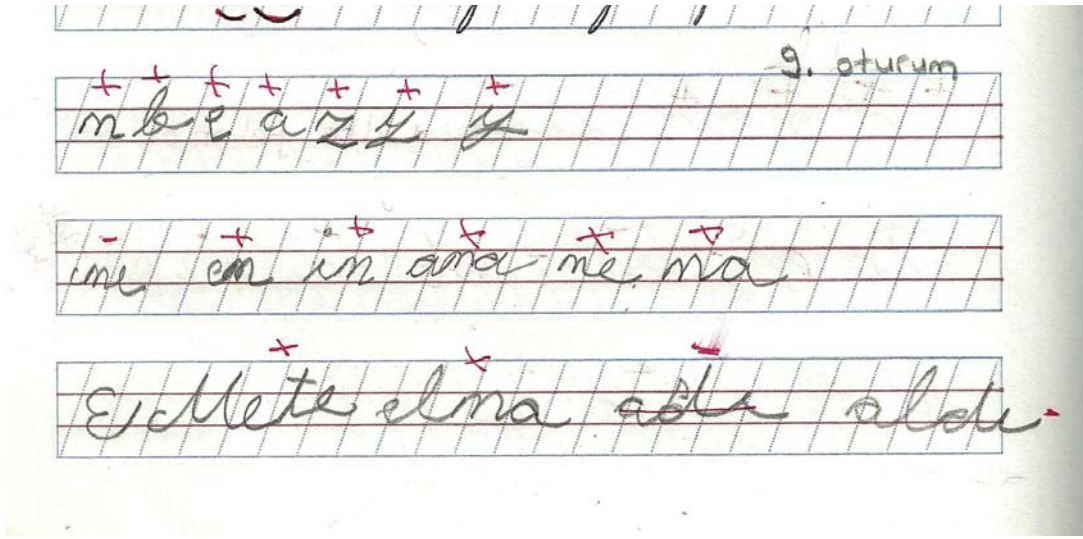 9. oturum
n b e a z y y
ine en in ana ne na
E Mete elma adı aldı.